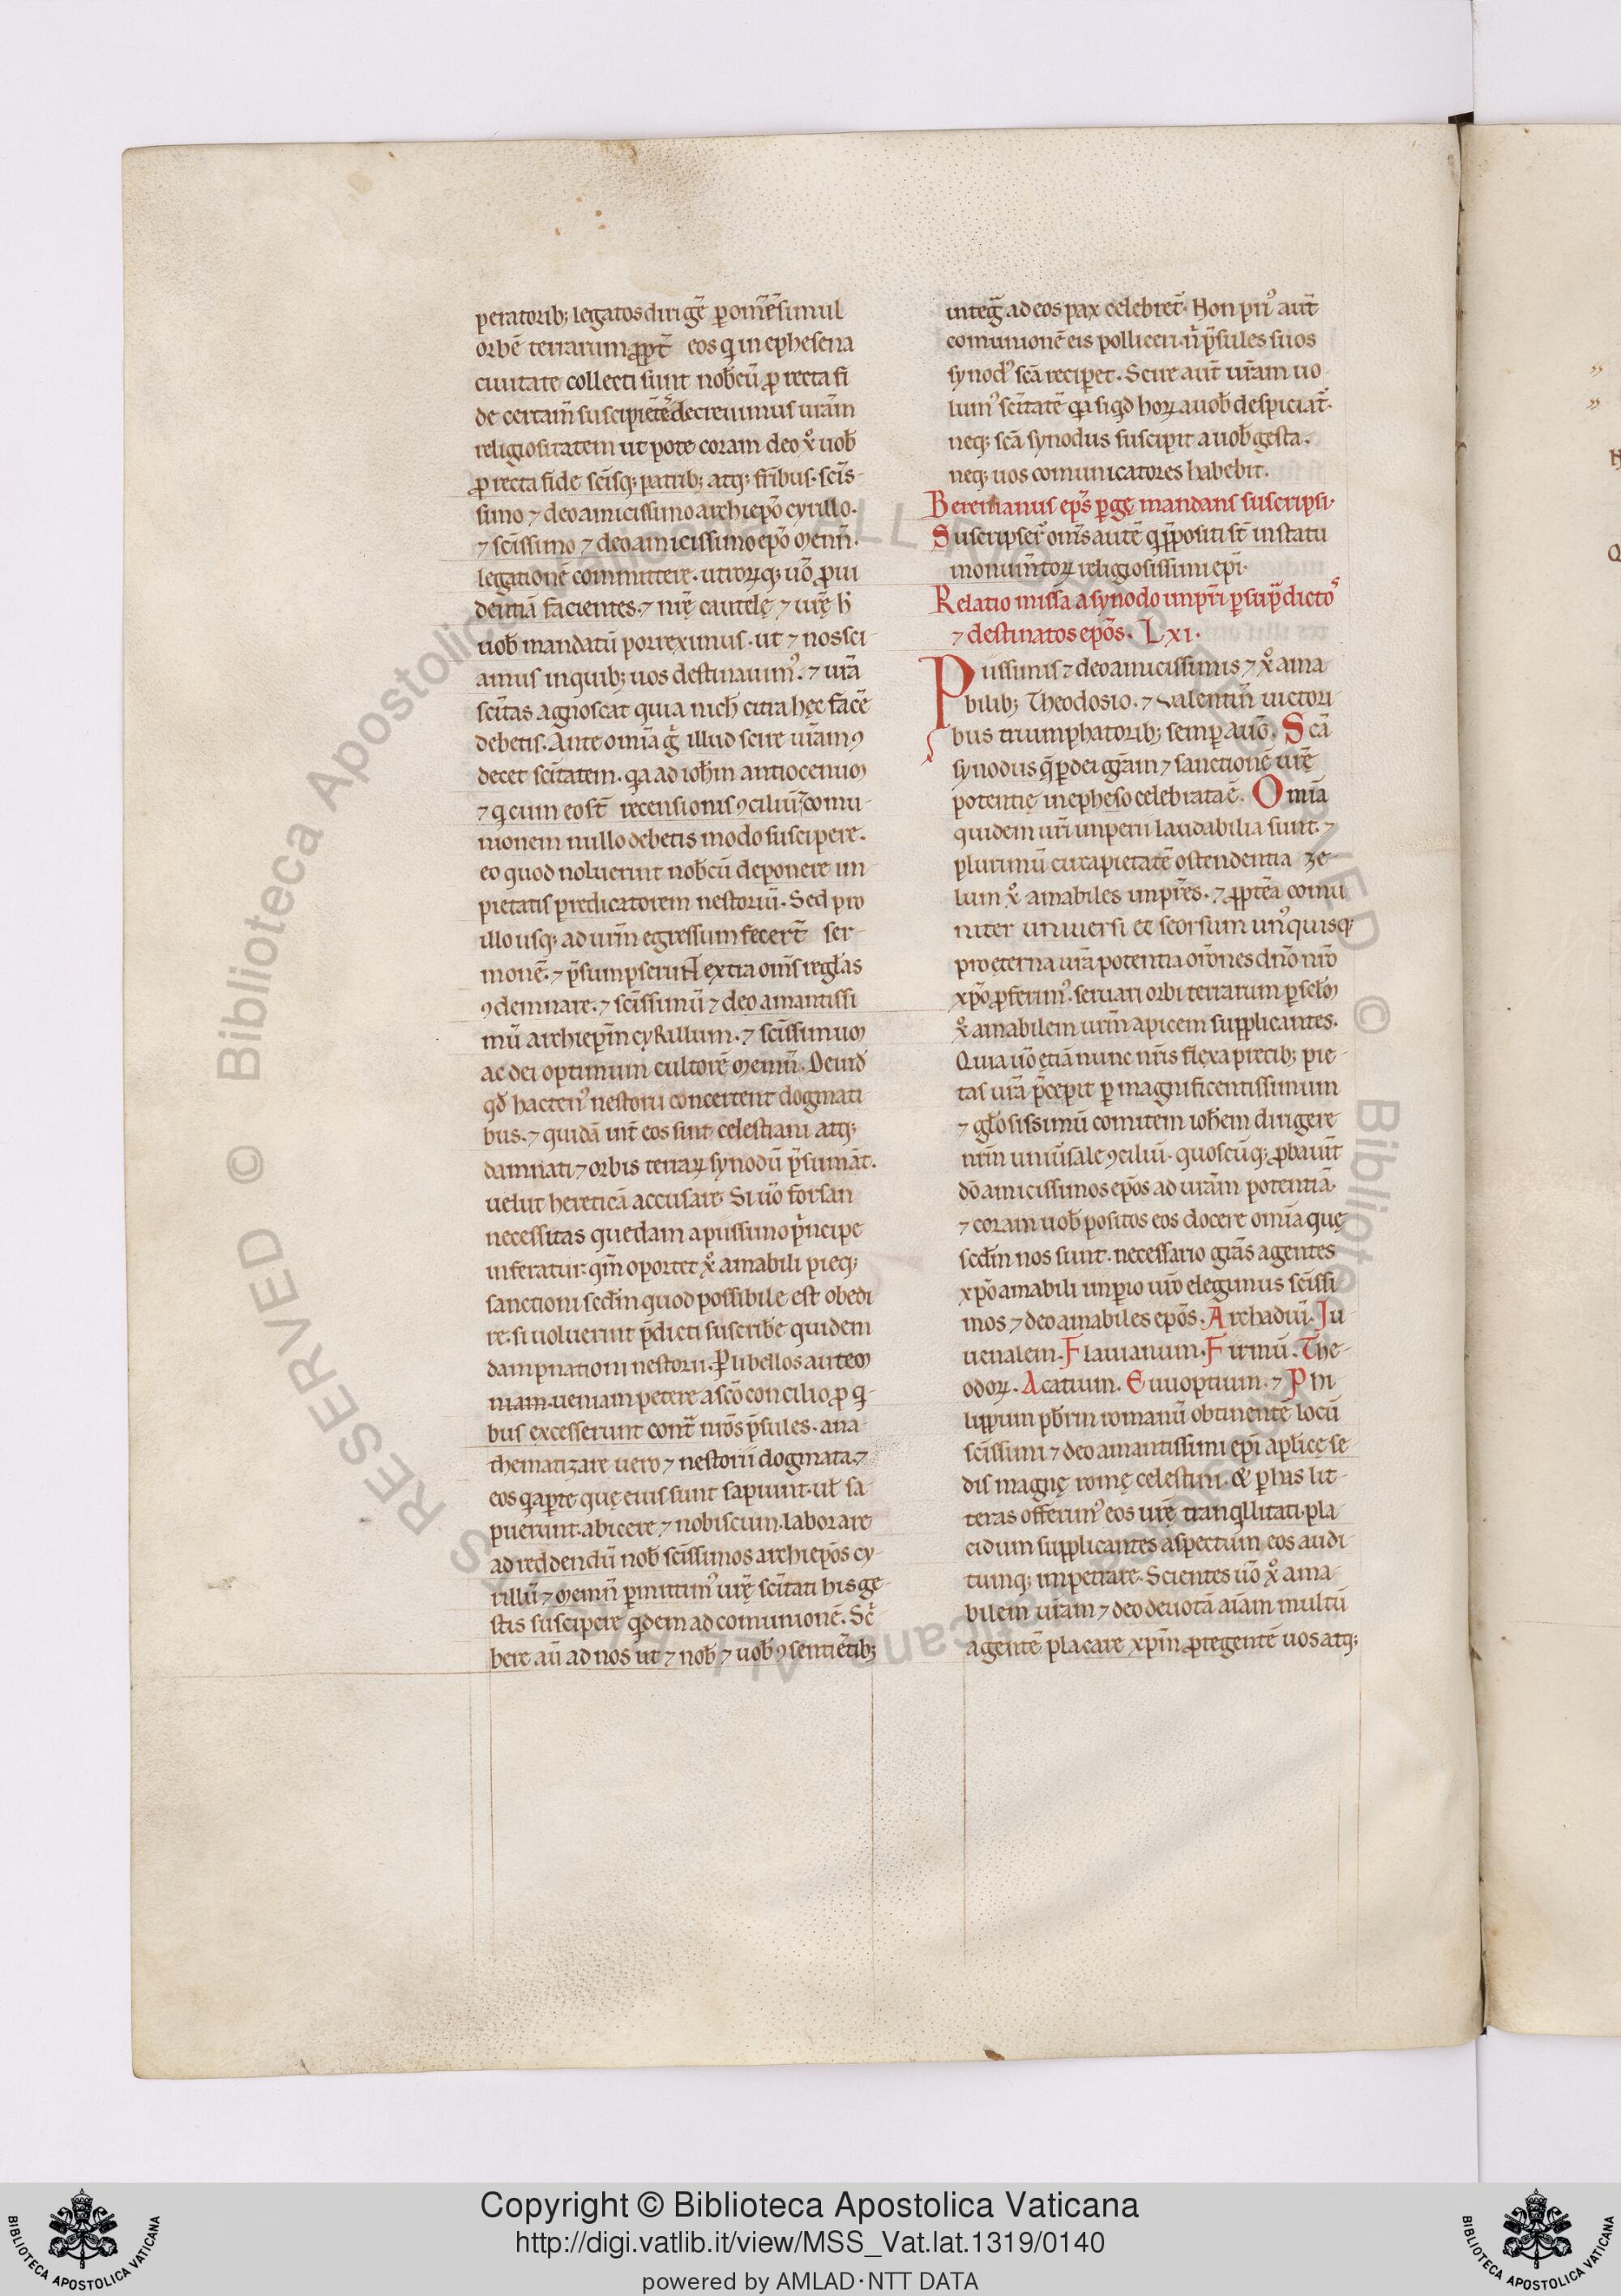 peratorib; legatos dirigē p om̄ē simul
orbē terrarum ꝓpt̄ eos q̇ in ephesena
ciuitate collecti sunt nob̄cū ꝓ recta fi
de certam̄ suscipiētē decreuimus ur̄am
religiositatem ut pote coram deo & uob̄
ꝓ recta fide sc̄isq; patrib; atq; fr̄ibus. sc̄is-
simo ⁊ deo amicissimo archiepō cyrillo.
⁊ sc̄issimo ⁊ deo amicissimo epō memn̄.
legationē committere. utrorꝝq; uō ꝓui
dentiā facientes. ⁊ nr̄ę cautelę ⁊ ur̄ę h̄
uob̄ mandatū porreximus. ut ⁊ nos sci-
amus in quib; uos destinauim᾽. ⁊ ur̄a
sc̄itas agnoscat quia nich̄ citra hęc facē
debetis. Ante om̄ia ḡ illud scire ur̄am ꝯ
decet sc̄itatem. qa ad ioh̄m antiocenum
⁊ q̇ cum eo st̄ recensionis ꝯciliū comu-
nionem nullo debetis modo suscipere.
eo quod noluerint nob̄cū deponere im
pietatis predicatorem nestoriū. Sed pro
illo usq; ad ur̄m egressum fecert̄ ser-
monē. ⁊ p̄sumpserunt extra om̄s regłas
ꝯdemnare. ⁊ sc̄issimū ⁊ deo amantissi
mū archiepm̄ cyrillum. ⁊ sc̄issimum
ac dei optimum cultorē memn̄. Deind̄
qd̄ hacten᾽ nestorii concertent dogmati
bus. ⁊ quidā int̄ eos sint celestiani atq;
damnati ⁊ orbis terrarꝝ synodū p̄sumāt.
uelut hereticā accusare. Si uō forsan
necessitas quedam a piissimo p̄ncipe
inferatur. qm̄ oportet x̊ amabili pieq;
sanctioni scd̄m quod possibile est obedi
re. si uoluerint p̄dicti suscribe quidem
dampnationi nestorii. Ꝑ libellos autem
niam. ueniam petere a sc̄o concilio ꝓ q̇-
bus excesserunt cont̄ nr̄os p̄sules. ana
thematizare uero ⁊ nestorii dogmata. ⁊
eos q̇ apte quę eius sunt sapiunt. uł sa-
puerunt. abicere ⁊ nobiscum. laborare
ad reddendū nob̄ sc̄issimos archiepōs cy-
rillū ⁊ memn̄ pmittim᾽ ur̄ę sc̄itati his ge-
stis suscipere q̇dem ad comunionē. Sc̄
bere aū ad nos ut ⁊ nob̄ ⁊ uob̄ ꝯsentiētib;
inteḡ ad eos pax celebret̄. Non pri᾽ aut̄
comunionē eis polliceri. n̄ p̄sules suos
synod᾽ sc̄a recipet. Scire aut̄ ur̄am uo-
lum᾽ sc̄itatē qa siqd horꝝ a uob̄ despiciat̄.
neq; sc̄a synodus suscipit a uob̄ gesta.
neq; uos comunicatores habebit.
Berenianus ep̄s p̄gę mandans suscripsi.
Suscripser᾽ om̄s autē q̇ p̄positi st̄ in statu
monum̄torꝝ religiosissimi ep̄i.
Relatio missa a synodo impr̄i p sup̄dictos
⁊ destinatos epōs. Lxi.
Piissimis ⁊ deo amicissimis ⁊ x̊ ama
bilib; Theodosio. ⁊ Valentin̄ uictori
bus triumphatorib; semp auḡ. Sc̄a
synodus q̄ p dei gr̄am ⁊ sanctionē ur̄ę
potentię in epheso celebrata ē. Om̄ia
quidem ur̄i imperii laudabilia sunt. ⁊
plurimū circa pietatē ostendentia ze-
lum x̊ amabiles impr̄es. ⁊ ꝓptēa comu
niter uniuersi et seorsum un᾽quisq;
pro ęterna ur̄a potentia or̄ones dn̄o nr̄o
xp̄o ꝓferim᾽. seruari orbi terrarum p sclōm
x̊ amabilem ur̄m apicem supplicantes.
Quia uō etiā nunc nr̄is flexa precib; pie-
tas ur̄a p̄cepit p magnificentissimum
⁊ głosissimū comitem ioh̄em dirigere
nr̄m uniūsale ꝯciliū. quoscūq; ꝓbauit̄
dō amicissimos epōs ad ur̄am potentiā.
⁊ coram uob̄ positos eos docere om̄ia quę
scd̄m nos sunt. necessario gr̄as agentes
xp̄o amabili imprio ur̄o elegimus sc̄issi
mos ⁊ deo amabiles epōs. Archadiū. Ju
uenalem. Flauianum. Firmū. The-
odorꝝ. Acatium. Euuoptium. ⁊ Phi-
lippum pb̄rm romanū obtinentē locū
sc̄issimi ⁊ deo amantissimi ep̄i apłicę se
dis magnę romę celestini. & p has lit-
teras offerim᾽ eos ur̄ę tranq̇llitati. pla
cidum supplicantes aspectum eos audi-
tumq; impetrare. Scientes uō x̊ ama-
bilem ur̄am ⁊ deo deuotā aīam multū
agentē placare xp̄m ꝓtegentē uos atq;
Copyright © Biblioteca Apostolica Vaticana
http://digi.vatlib.it/view/MSS_Vat.lat.1319/0140
powered by AMLAD·NTT DATA
BIBLIOTECA APOSTOLICA VATICANA
BIBLIOTECA APOSTOLICA VATICANA